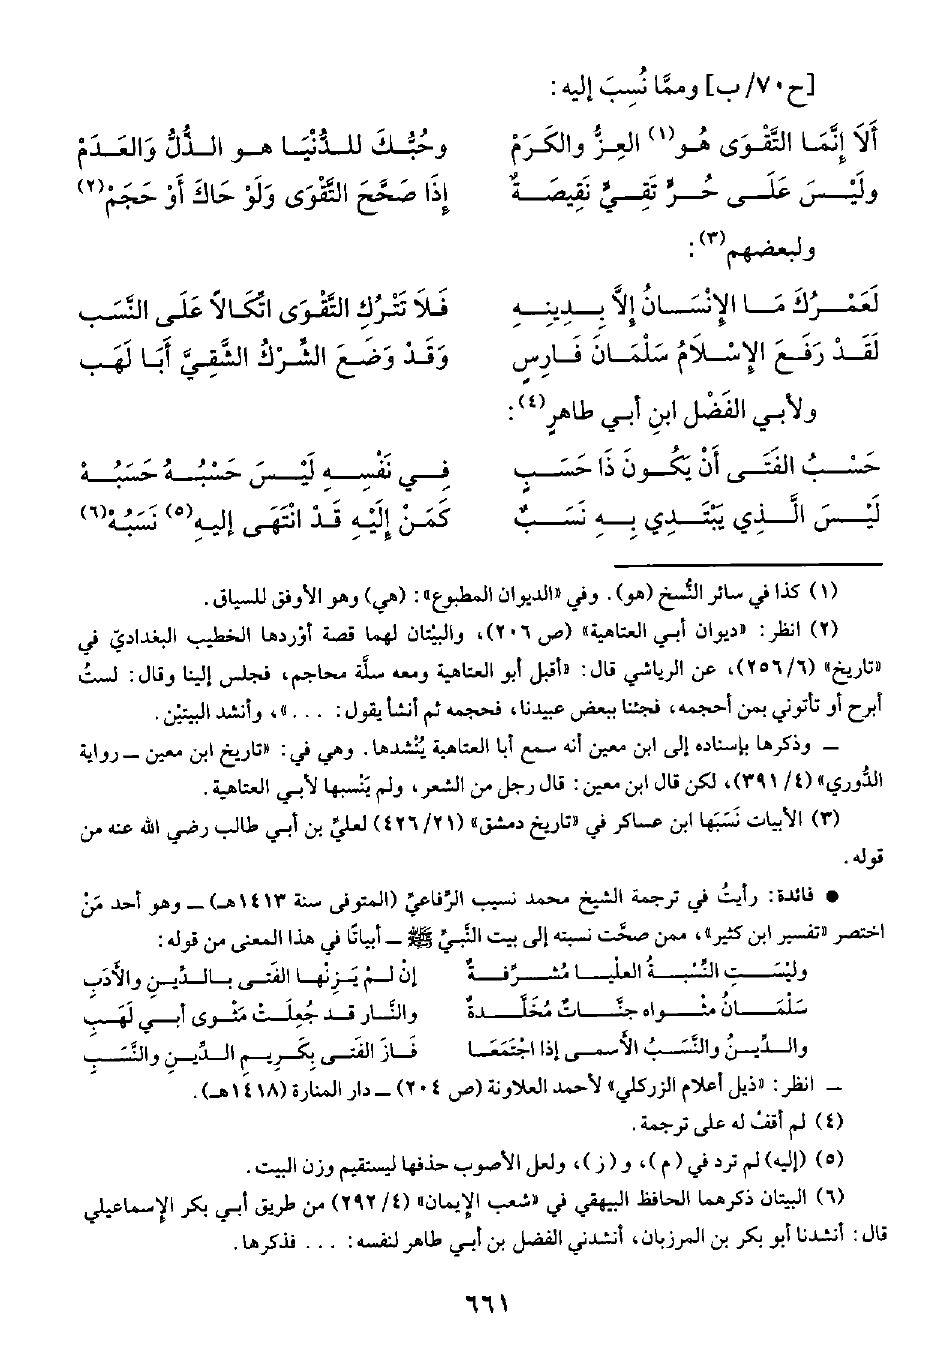 [ح ٧٠/ب] وممَّا نُسِبَ إليه:
أَلَا إِنَّمَا التَّقْوَى هُو(١) العِزُّ والكَرَمْ وحُبُّكَ للدُّنْيَا هو الذُّلُّ وَالعَدَمْ
ولَيْسَ عَلَى حُرٍّ تَقِيٍّ نَقِيصَةٌ إِذَا صَحَّحَ التَّقْوَى وَلَوْ حَاكَ أَوْ حَجَمْ(٢)
ولبعضهم(٣):
لَعَمْرُكَ مَا الإِنْسَانُ إِلاَّ بِدِينِهِ فَلَا تَتْرُكِ التَّقْوَى اتِّكَالاً عَلَى النَّسَبِ
لَقَدْ رَفَعَ الإِسْلَامُ سَلْمَانَ فَارِسٍ وَقَدْ وَضَعَ الشِّرْكُ الشَّقِيَّ أَبَا لَهَبِ
ولأبي الفَضْل ابن أبي طاهرٍ(٤):
حَسْبُ الفَتَى أَنْ يَكُونَ ذَا حَسَبٍ فِي نَفْسِهِ لَيْسَ حَسْبُهُ حَسَبُهْ
لَيْسَ الَّذِي يَبْتَدِي بِهِ نَسَبٌ كَمَنْ إِلَيْهِ قَدْ انْتَهَى إليه(٥) نَسَبُهْ(٦)
(١) كذا في سائر النُّسخ (هو). وفي «الديوان المطبوع»: (هي) وهو الأوفق للسياق.
(٢) انظر: «ديوان أبي العتاهية» (ص ٢٠٦)، والبيْتان لهما قصة أوْردها الخطيب البغداديّ في
«تاريخ» (٢٥٦/٦)، عن الرياشي قال: «أقبل أبو العتاهية ومعه سلَّة محاجم، فجلس إلينا وقال: لستُ
أبرح أو تأتوني بمن أحجمه، فجئنا ببعض عبيدنا، فحجمه ثم أنشأ يقول: ...»، وأنشد البيتيْن.
ـ وذكرها بإسناده إلى ابن معين أنه سمع أبا العتاهية يُنْشدها. وهي في: «تاريخ ابن معين ـ رواية
الدُّوري» (٤/ ٣٩١)، لكن قال ابن معين: قال رجل من الشعر، ولم يَنْسبها لأبي العتاهية.
(٣) الأبيات نَسَبَها ابن عساكر في «تاريخ دمشق» (٤٢٦/٢١) لعليِّ بن أبي طالب رضي الله عنه من
قوله.
● فائدة: رأيتُ في ترجمة الشيخ محمد نسيب الرِّفاعيِّ (المتوفى سنة ١٤١٣هـ) ـ وهو أحد مَنْ
اختصر «تفسير ابن كثير»، ممن صحَّت نسبته إلى بيت النَّبيِّ ﷺ ـ أبياتًا في هذا المعنى من قوله:
وليْسَتِ النِّسْبَةُ العليا مُشَرِّفةٌ إنْ لمْ يَزِنْها الفَتى بالدِّينِ والأَدَبِ
سَلْمَانُ مثْواه جنَّاتٌ مُخَلَّدةٌ والنَّار قد جُعِلَتْ مَثْوى أبي لَهَبِ
والدِّينُ والنَّسَبُ الأَسمى إذا اجتَمَعَا فَازَ الفَتى بِكَرِيمِ الدِّينِ والنَّسَبِ
ـ انظر: «ذيل أعلام الزركلي» لأحمد العلاونة (ص ٢٠٤) ـ دار المنارة (١٤١٨هـ).
(٤) لم أقفْ له على ترجمة.
(٥) (إليه) لم ترد في (م)، و (ز)، ولعل الأصوب حذفها ليستقيم وزن البيت.
(٦) البيتان ذكرهما الحافظ البيهقي في «شعب الإيمان» (٤/ ٢٩٢) من طريق أبي بكر الإسماعيلي
قال: أنشدنا أبو بكر بن المرزبان، أنشدني الفضل بن أبي طاهر لنفسه: ... فذكرها.
٦٦١